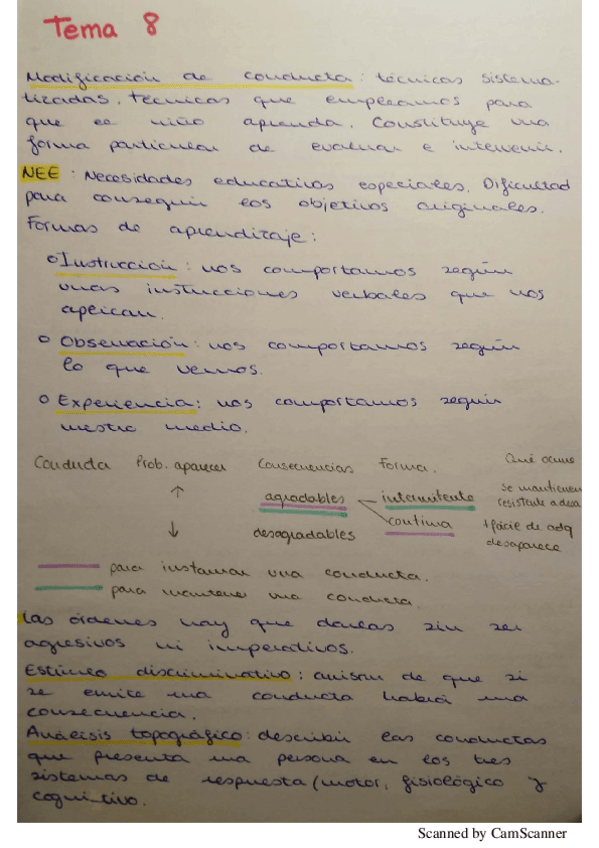 Tema 8
Modificación de conducta: técnicas sistema-
tizadas. Técnicas que empleamos para
que el niño aprenda. Constituye una
forma particular de evaluar e intervenir.
NEE: Necesidades educativas especiales. Dificultad
para conseguir los objetivos originales.
Formas de aprendizaje:
o Instrucción: nos comportamos según
unas instrucciones verbales que nos
aplican.
o Observación: nos comportamos según
lo que vemos.
o Experiencia: nos comportamos según
nuestro medio.
Conducta Prob. aparecer Consecuencias Forma. Qué ocurre
↑ agradables intermitente se mantienen
continua
↓ desagradables + fácil de adq
desaparece
para instaurar una conducta.
para mantener una conducta.
Las órdenes hay que darlas sin ser
agresivos ni imperativos.
Estímulo discriminativo: avisan de que si
se emite una conducta habrá una
consecuencia.
Análisis topográfico: describir las conductas
que presenta una persona en los tres
sistemas de respuesta (motor, fisiológico y
cognitivo.
Scanned by CamScanner